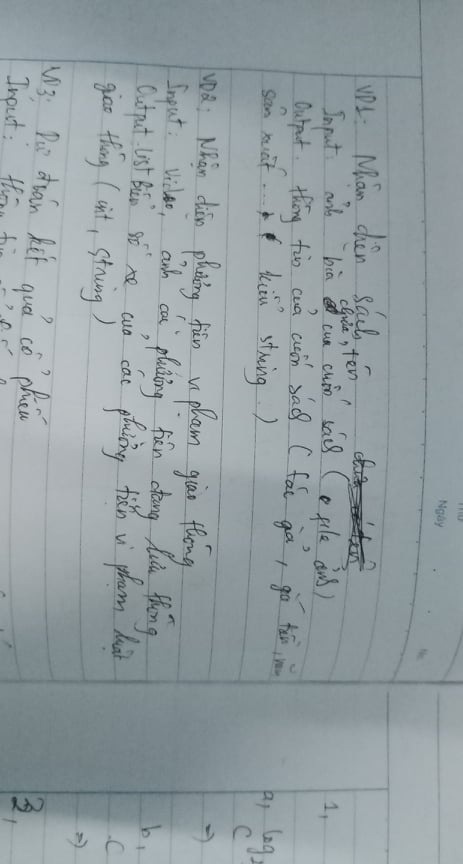 Thứ
Ngày
No
VD1: Nhận diện sách
Input: ảnh bìa chứa tên của cuốn sách (file ảnh)
Output: thông tin của cuốn sách (tác giả, giá tiền, năm
sản xuất ... kiểu string)
VD2: Nhận diện phương tiện vi phạm giao thông
Input: Video, ảnh các phương tiện đang lưu thông
Output: list biển số xe của các phương tiện vi phạm luật
giao thông (int, string)
VD3: Dự đoán kết quả cổ phiếu
Input: thông tin
1,
a, log
C
=)
b,
C
=)
2,